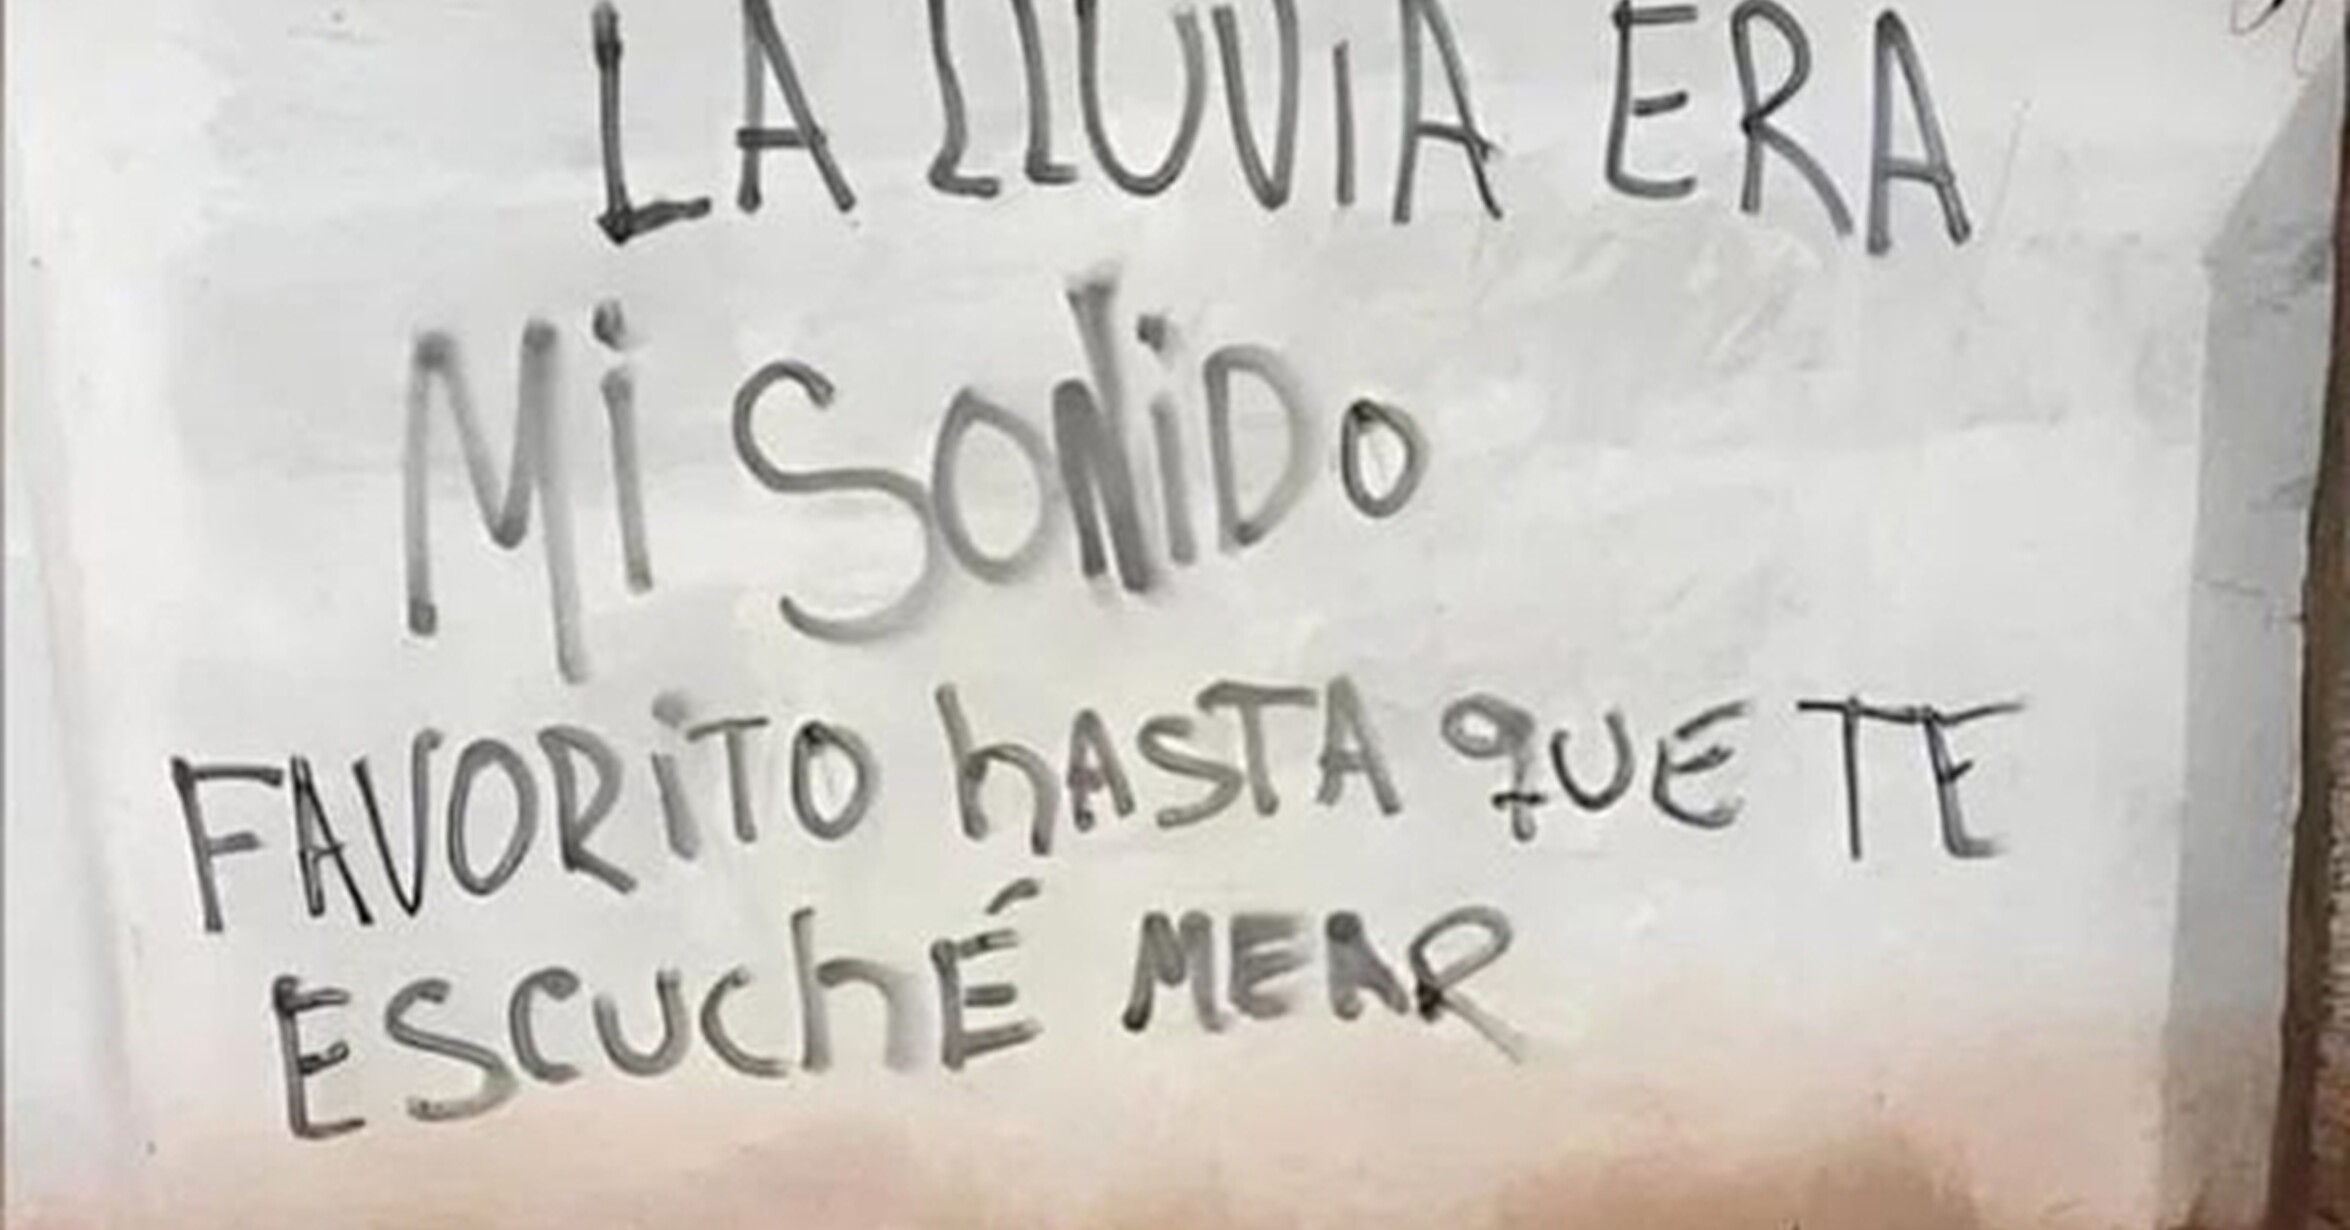 LA LLUViA ERA
Mi SONiDo
FAVORiTO hASTA qUE TE
ESCUChÉ MEAR